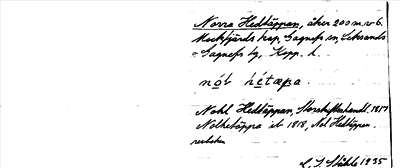 Norra Hedtäppan, åker 200 m. v. 6.
Mockfjärds kap, Gagnefs sn, Leksands
o Gagnefs tg, Kopp. l.
nól hétæpa.
Nohl Hedtäppan, Storskifteshandl. 1817
Nolhetäppa ib 1818, Nol Hedtäppen.
L. J. Ståhle 1935